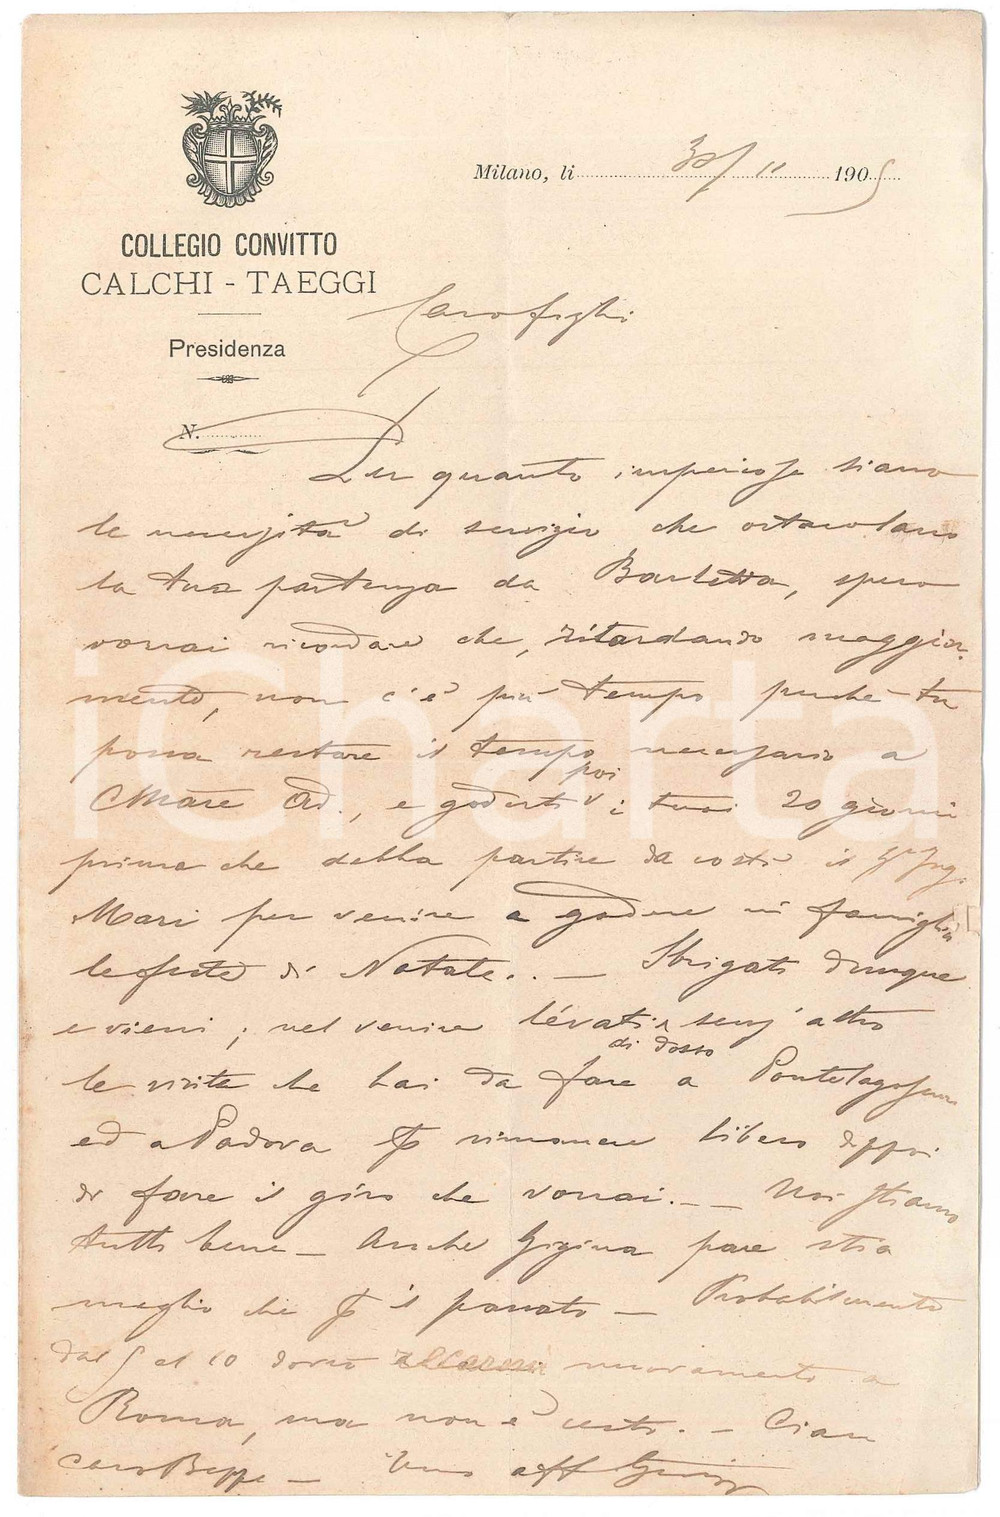 Milano, li 30/11 1905
COLLEGIO CONVITTO
CALCHI - TAEGGI
Presidenza
N.
Caro
Per quanto imperiose siano
le necessità di servizio che ostacolano
la tua partenza da Barletta, spero
vorrai ricordare che, ritardando maggior-
mente, non c'è più tempo perché tu
possa restare il tempo necessario a
CMare Ad., e goderti poi i tuoi 20 giorni
prima che debba partire da costì il
Mari per venire a godere in famiglia
le feste di Natale. . — Sbrigati dunque
e vieni ; nel venire lévati di dosso senz'altro
le visite che hai da fare a Pontelagoscuro
ed a Padova rimanere libero dippoi
di fare il giro che vorrai. — Noi stiamo
tutti bene — Anche Gigina pare stia
meglio che il passato — Probabilmente
dal 5 al 10 dovrò recarmi nuovamente a
Roma, ma non è certo. — Ciao
caro Beppe — Tuo aff
iCharta